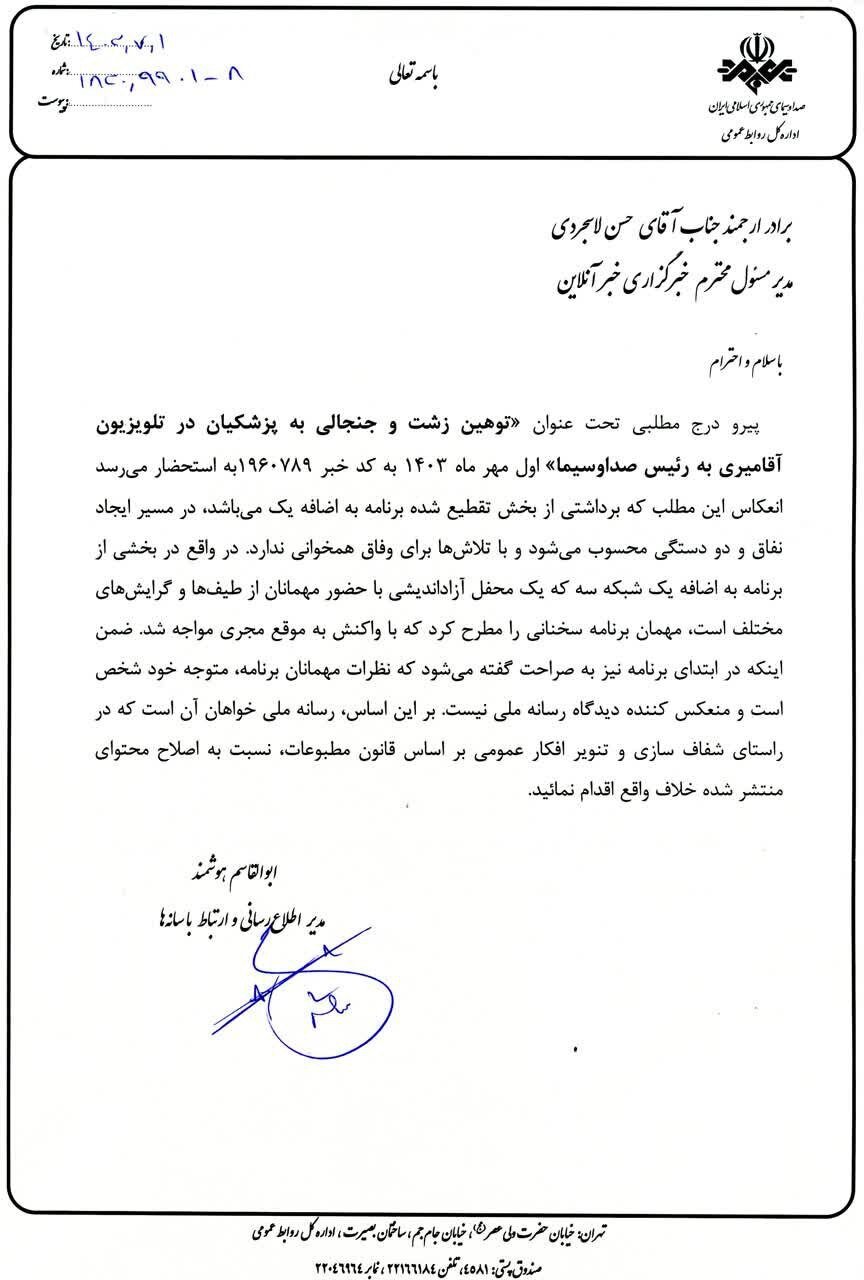 باسمه تعالی
صدا و سیمای جمهوری اسلامی ایران
اداره کل روابط عمومی
تاریخ:
شماره:
پیوست:
برادر ارجمند جناب آقای حسن لاسجردی
مدیر مسئول محترم خبرگزاری خبرآنلاین
با سلام و احترام
پیرو درج مطلبی تحت عنوان «توهین زشت و جنجالی به پزشکیان در تلویزیون
آقامیری به رئیس صداوسیما» اول مهر ماه ۱۴۰۳ به کد خبر ۱۹۶۰۷۸۹به استحضار می‌رسد
انعکاس این مطلب که برداشتی از بخش تقطیع شده برنامه به اضافه یک می‌باشد، در مسیر ایجاد
نفاق و دو دستگی محسوب می‌شود و با تلاش‌ها برای وفاق همخوانی ندارد. در واقع در بخشی از
برنامه به اضافه یک شبکه سه که یک محفل آزاداندیشی با حضور مهمانان از طیف‌ها و گرایش‌های
مختلف است، مهمان برنامه سخنانی را مطرح کرد که با واکنش به موقع مجری مواجه شد. ضمن
اینکه در ابتدای برنامه نیز به صراحت گفته می‌شود که نظرات مهمانان برنامه، متوجه خود شخص
است و منعکس کننده دیدگاه رسانه ملی نیست. بر این اساس، رسانه ملی خواهان آن است که در
راستای شفاف سازی و تنویر افکار عمومی بر اساس قانون مطبوعات، نسبت به اصلاح محتوای
منتشر شده خلاف واقع اقدام نمائید.
ابوالقاسم هوشمند
مدیر اطلاع رسانی و ارتباط با رسانه‌ها
تهران: خیابان حضرت ولی عصر(عج)، خیابان جام جم، ساختمان بصیرت، اداره کل روابط عمومی
صندوق پستی: ۴۵۸۱، تلفن ۲۲۱۶۶۱۸۴، نمابر ۲۲۰۴۶۹۶۴